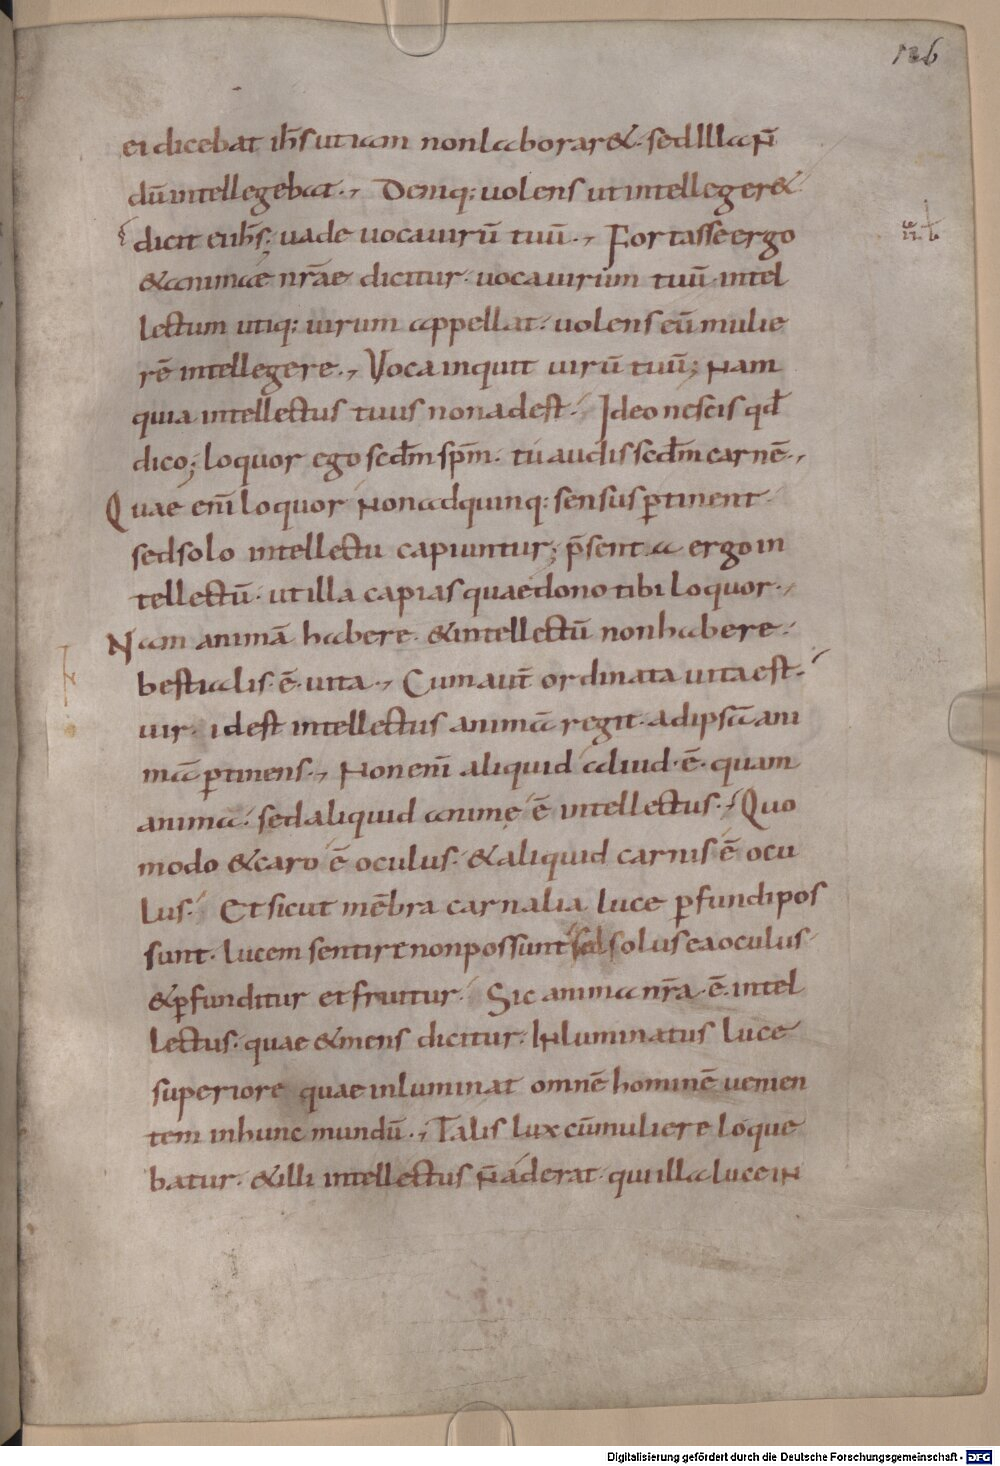 126
ei dicebat ih̄s ut iam non laborar& · sed illa n̄
dū intellegebat ·, Deniq; uolens ut intelleger&
dicit ei ih̄s; uade uoca uirū tuū ·, Fortasse ergo
& animae nr̄ae dicitur · uoca uirum tuū · intel
lectum utiq; uirum appellat · uolens eū mulie
rē intellegere ·, Voca inquit uirū tuū; Nam
quia intellectus tuus non adest · Ideo nescis qd̄
dico; loquor ego scdm̄ spm̄ · tu audis scdm̄ carnē ·,
Quae eni̅ loquor Non ad quinq; sensus ptinent ·
sed solo intellectu capiuntur; p̄senta ergo in
tellectū · ut illa capias quae dono tibi loquor ·,
Nam animā habere · & intellectū non habere ·
bestialis · ē · uita ·, Cum aut̄ ordinata uita est ·
uir · id est intellectus animā regit · ad ipsā ani
mā ptinens ·, Non eni̅ aliquid aliud · ē · quam
anima · sed aliquid animę ē intellectus ·, Quo
modo & caro ē oculus · & aliquid carnis ē ocu
lus · Et sicut mēbra carnalia luce pfundi pos
sunt · lucem sentire non possunt sed solus ea oculus
& pfunditur et fruitur · Sic anima nr̄a · ē · intel
lectus · quae & mens dicitur · Inluminatus luce
superiore quae inluminat omnē hominē uenien
tem in hunc mundū ·, Talis lux cū muliere loque
batur · & illi intellectus n̄ aderat · qui illa luce in
Digitalisierung gefördert durch die Deutsche Forschungsgemeinschaft - DFG